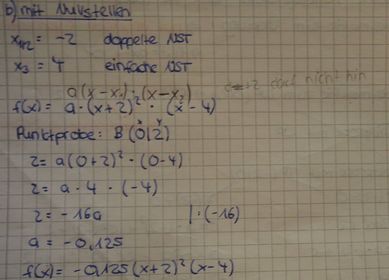 b) mit Nullstellen
x₁/₂ = -2 doppelte NST
x₃ = 4 einfache NST
a(x-x₁)·(x-x₂)
darf nicht hin
f(x) = a·(x+2)²·(x-4)
Punktprobe: B(0|2)
x y
2 = a(0+2)²·(0-4)
2 = a·4·(-4)
2 = -16a |:(-16)
a = -0,125
f(x) = -0,125(x+2)²(x-4)